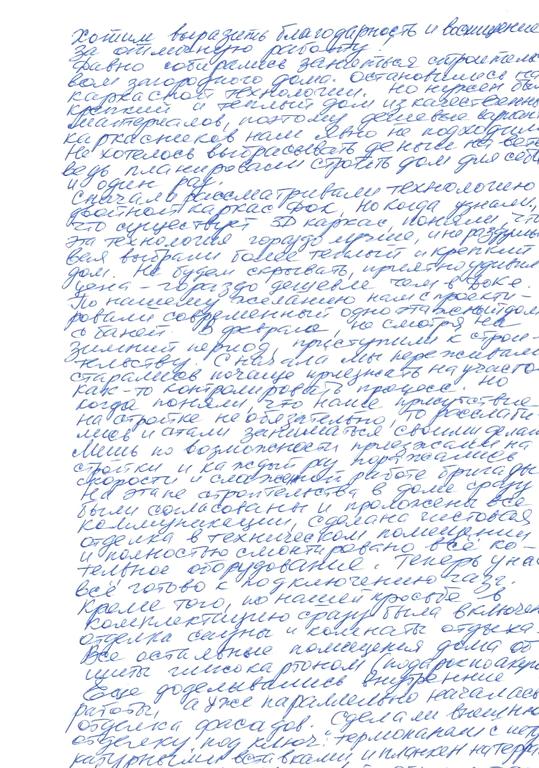 Хотим выразить благодарность и восхищение
за отличную работу.
Давно собирались заняться строительс
вом загородного дома. Остановились на
каркасной технологии. Но нужен был
крепкий и теплый дом из качественны
материалов, поэтому дешевые вариант
каркасников нам явно не подходили
Не хотелось выбрасывать деньги на вете
ведь планировали строить дом для себя
и один раз.
Сначала рассматривали технологию
двойной каркас Док, но когда узнали,
что существует 3D каркас, поняли, что
эта технология гораздо лучше, и не раздумы
вая выбрали более теплый и крепкий
дом. Не будем скрывать, приятно удивил
цена - гораздо дешевле чем в Доке.
По нашему желанию нам спроекти-
ровали современный одноэтажный дом
с баней. В феврале, не смотря на
зимний период, приступили к строи-
тельству. Сначала мы переживали
старались почаще приезжать на участо
как-то контролировать процесс. Но
когда поняли, что наше присутствие
на стройке не обязательно, то расслаби-
лись и стали заниматься своими делам
Лишь по возможности приезжали на
стройку и каждый раз поражались
скорости и слаженной работе бригады.
На этапе строительства в доме сразу
были согласованы и проложены все
коммуникации, сделана чистовая
отделка в техническом помещении
и полностью смонтировано все ко-
тельное оборудование. Теперь у нас
всё готово к подключению газа.
Кроме того, по нашей просьбе в
комплектацию сразу была включен
отделка сауны и комнаты отдыха.
Все остальные помещения дома об
шиты гипсокартоном (подарок по акци
Еще доделывались внутренние
работы, а уже параллельно началась
отделка фасадов. Сделали внешню
отделку под ключ: термопанели с
катурными вставками, и планкен на терр